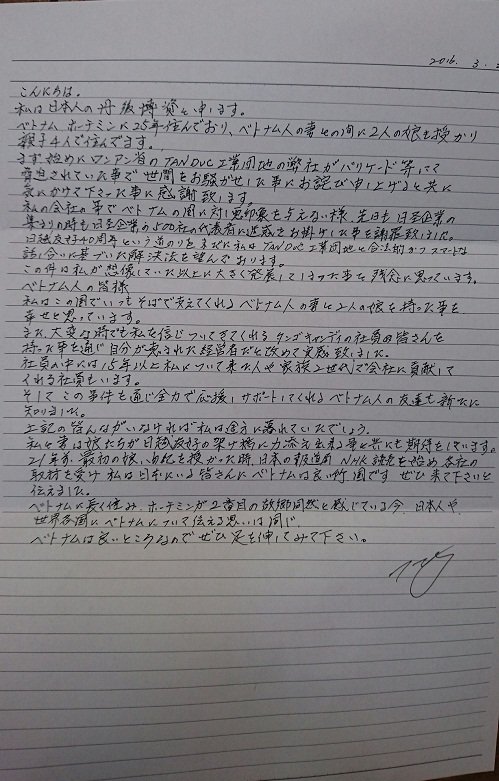 2016. 3.
こんにちは。
私は日本人の丹後博資と申します。
ベトナム ホーチミンに25年住んでおり、ベトナム人の妻との間に2人の娘を授かり
親子4人で住んでます。
まず始めにロンアン省のTAN DUC工業団地の弊社がバリケード等にて
脅迫されていた事で世間をお騒がせした事にお詫び申し上げると共に
気にかけて下さった事に感謝致します。
私の会社の事でベトナムの国に対し悪印象を与えない様、先日も日系企業の
集まりの時も日系企業の 社の代表者に迷惑をお掛けした事を謝罪致しました。
日越友好40周年という道のりを まだに私はTAN DUC工業団地と合法的かつスマートな
話し合いに基づいた解決法を望んでおります。
この件は私が想像していた以上に大きく発展してしまった事を残念に思っています。
ベトナム人の皆様
私はこの国でいつもそばで支えてくれるベトナム人の妻と2人の娘を持った事を
幸せと思っています。
また、大変な時でも私を信じついてきてくれる タンゴキャンディの社員の皆さんを
持った事を通じ自分が恵まれた経営者だと改めて実感致しました。
社員の中には15年以上私について来た人や家族2世代で会社に貢献して
くれる社員もいます。
そしてこの事件を通じ全力で応援しサポートしてくれるベトナム人の友達も新たに
知りました。
上記の皆んながいなければ私は途方に暮れていたでしょう。
私と妻は娘たちが日越友好の架け橋に力添え出来る事と共にも期待をしています。
21年前、最初の娘、 を授かった時、日本の報道局 NHK 読売を始め各社の
取材を受け 私は日本にいる皆さんにベトナムは良い所です ぜひ来て下さいと
伝えました。
ベトナムに長く住み、ホーチミンが2番目の故郷同然と感じている今、日本人や
世界各国にベトナムについて伝える思いは同じ。
ベトナムは良いところなのでぜひ足を伸してみて下さい。